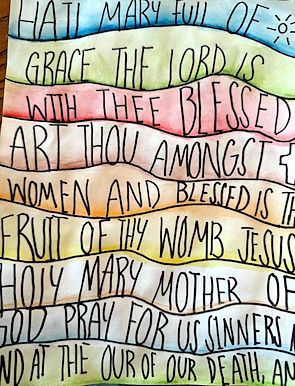 HAIL MARY FULL OF
GRACE THE LORD IS
WITH THEE BLESSED
ART THOU AMONGST
WOMEN AND BLESSED IS TH
FRUIT OF THY WOMB JESUS
HOLY MARY MOTHER OF
GOD PRAY FOR US SINNERS
ND AT THE OUR OF OUR DEATH, AN